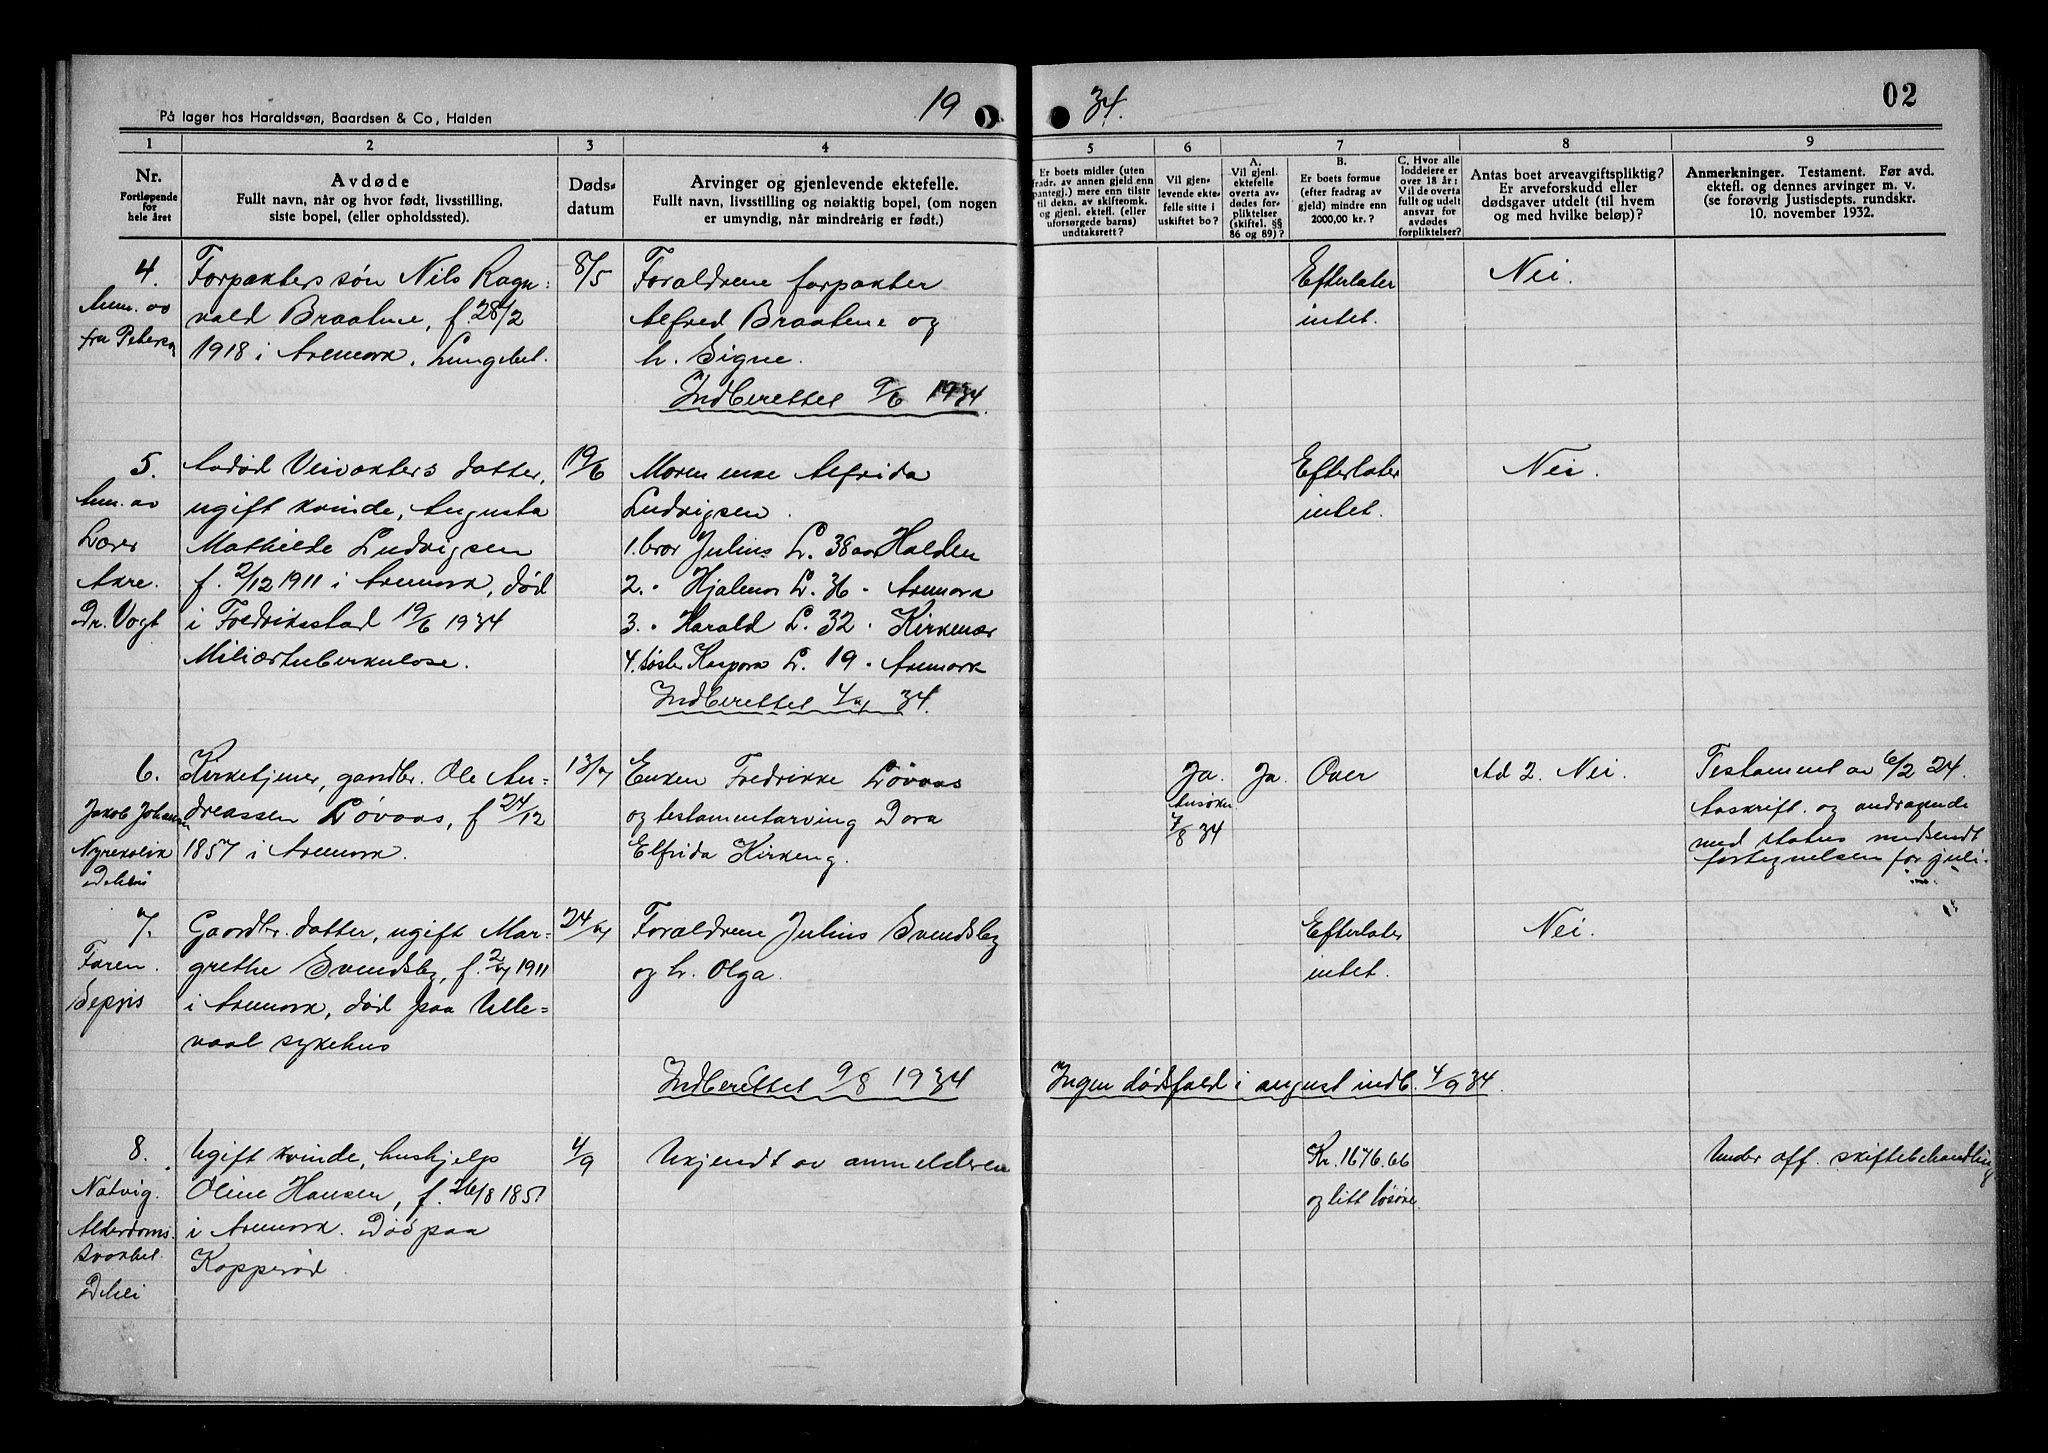 19 34.
02
På lager hos Haraldssøn, Baardsen & Co, Halden
1 2 3 4 5 6 7 8 9
Nr.
Fortløpende
for
hele året
Avdøde
Fullt navn, når og hvor født, livsstilling,
siste bopel, (eller opholdssted).
Døds-
datum
Arvinger og gjenlevende ektefelle.
Fullt navn, livsstilling og nøiaktig bopel, (om nogen
er umyndig, når mindreårig er født.)
Er boets midler (uten
fradr. av annen gjeld enn
pantegj.) mere enn tilstr
til dekn. av skifteomk.
og gjenl. ektefl. (eller
uforsørgede barns)
undtaksrett?
Vil gjen-
levende ekte-
felle sitte i
uskiftet bo?
A.
Vil gjenl.
ektefelle
overta av-
dødes for-
pliktelser
(skiftel. §§
86 og 89)?
B.
Er boets formue
(efter fradrag av
gjeld) mindre enn
2000,00 kr.?
C. Hvor alle
loddeiere er
over 18 år:
Vil de overta
fullt og udelt
ansvar for
avdødes
forpliktelser?
Antas boet arveavgiftspliktig?
Er arveforskudd eller
dødsgaver utdelt (til hvem
og med hvilke beløp)?
Anmerkninger. Testament. Før avd.
ektefl. og dennes arvinger m. v.
(se forøvrig Justisdepts. rundskr.
10. november 1932.
4.
Anm. av
fru Peterson
Forpakters søn Nils Ragn-
vald Braatene, f. 28/2
1918 i Aremark, Lungebet.
8/5
Foraldrene forpakter
Alfred Braatene og
h. Signe.
Indberettet 9/6 1934.
Efterlater
intet.
Nei.
5.
Anm. av
Lærer
Akre.
Dr. Vogt
Avdød Veivokters datter,
ugift kvinde, Augusta
Mathilde Ludvigsen
f. 2/12 1911 i Aremark, død
i Fredriksstad 19/6 1934
Miliærtuberkulose.
19/6
Moren enke Alfrida
Ludvigsen.
1. bror Julius L. 38 aar Halden
2. " Hjalmar L. 36 " Aremark
3. " Harald L. 32 " Kirkenær
4. søster Kaspara L. 19 " Aremark
Indberettet 4/7 34.
Efterlater
intet.
Nei.
6.
Jakob Johansen
Nyrekolik
Dehli
Kirketjener, gaardbr. Ole An-
dreassen Løvaas, f 24/12
1857 i Aremark.
13/7
Enken Fredrikke Løvaas
og testamentarving Dora
Elfrida Kirkeng.
Ja.
Ansøkn
7/8 34
Ja.
Over
Ad 2. Nei.
Testament av 6/2 24.
Avskrift og andragende
med status medsendt
fortegnelsen for juli.
7.
Faren.
Sepsis
Gaardbr. datter, ugift Mar-
grethe Svendsby, f. 2/7 1911
i Aremark, død paa Ulle-
vaal sykehus
24/7
Foraldrene Julius Svendsby
og h. Olga.
Efterlater
intet.
Nei.
Indberettet 9/8 1934
Ingen dødsfald i august indb. 4/9 34.
8.
Natvig.
Alderdoms
svakhet.
Dehli
Ugift kvinde, hushjelp
Oline Hansen, f. 26/8 1851
i Aremark. Død paa
Kopperød
4/9
Ukjendt av anmelderen
Kr. 1676.66
og litt løsøre.
Under off. skiftebehandling